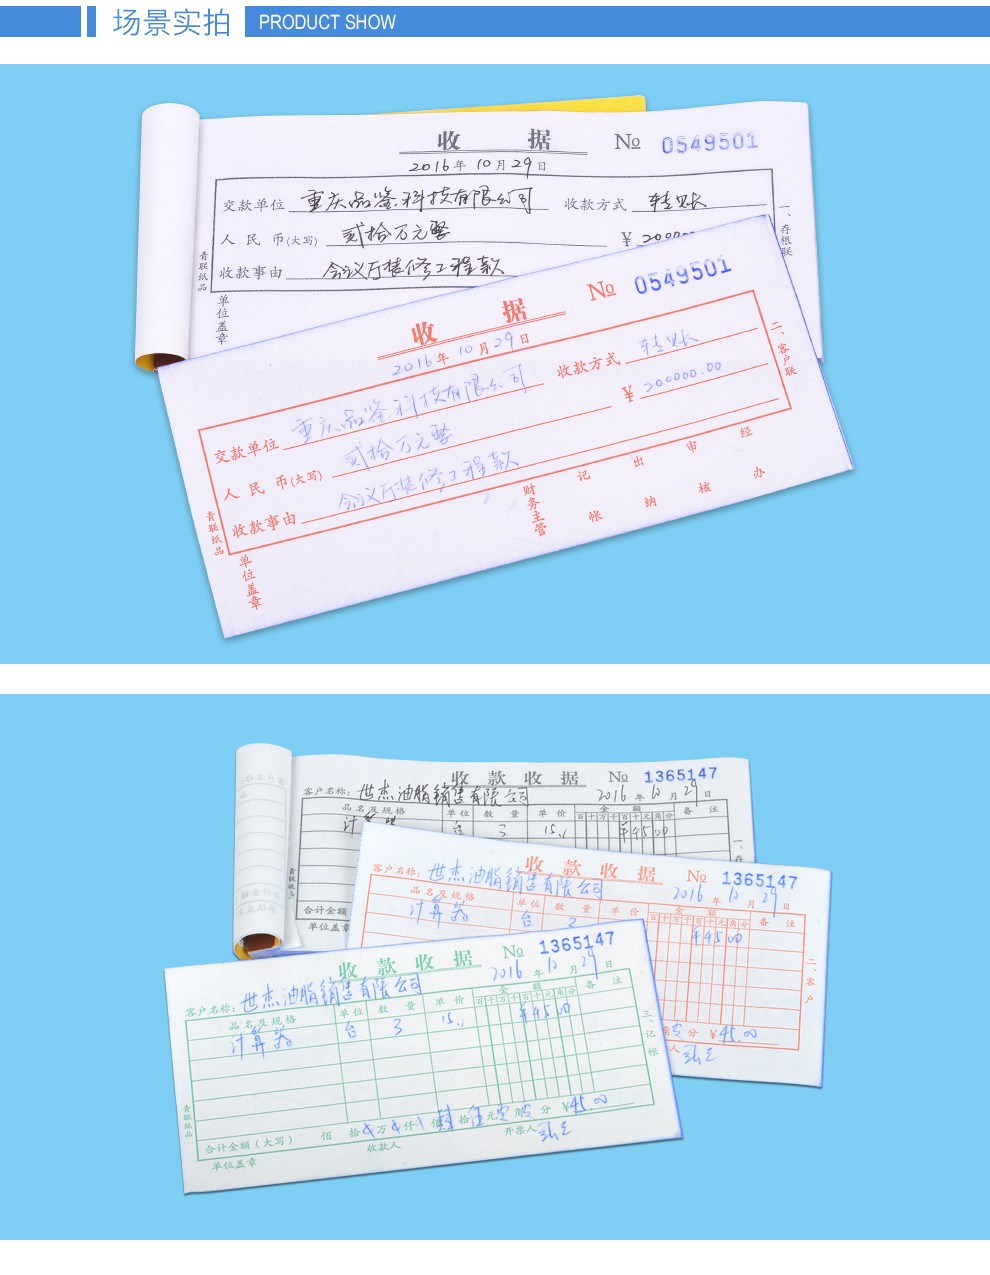 场景实拍 PRODUCT SHOW
收 据 № 0549501
2016年10月29日
交款单位 重庆品鉴科技有限公司 收款方式 转账
人民币(大写) 贰拾万元整 ¥ 20000
收款事由 会议厅装修工程款
一、存根联
青联纸品
单位盖章
收 据 № 0549501
2016年10月29日
交款单位 重庆品鉴科技有限公司 收款方式 转账
人民币(大写) 贰拾万元整 ¥ 200000.00
收款事由 会议厅装修工程款
二、客户联
青联纸品
单位盖章
财务主管 记帐 出纳 审核 经办
收款收据 № 1365147
客户名称: 世杰油脂销售有限公司 2016年10月29日
品名及规格 单位 数量 单价 金额 备注
百十万千百十元角分
计算器 台 3 15 ¥4500
一、存
青联纸品
合计金额
单位盖章
收款收据 № 1365147
客户名称: 世杰油脂销售有限公司 2016年10月29日
品名及规格 单位 数量 单价 金额 备注
百十万千百十元角分
计算器 台 ¥4500
二、客户
角 分 ¥45.00
人
收款收据 № 1365147
客户名称: 世杰油脂销售有限公司 2016年10月29日
品名及规格 单位 数量 单价 金额 备注
百十万千百十元角分
计算器 台 3 15 ¥4500
三、记帐
青联纸品
合计金额(大写) 佰 拾 万 仟 佰 肆拾伍元 角 分 ¥45.00
单位盖章 收款人 开票人 张三